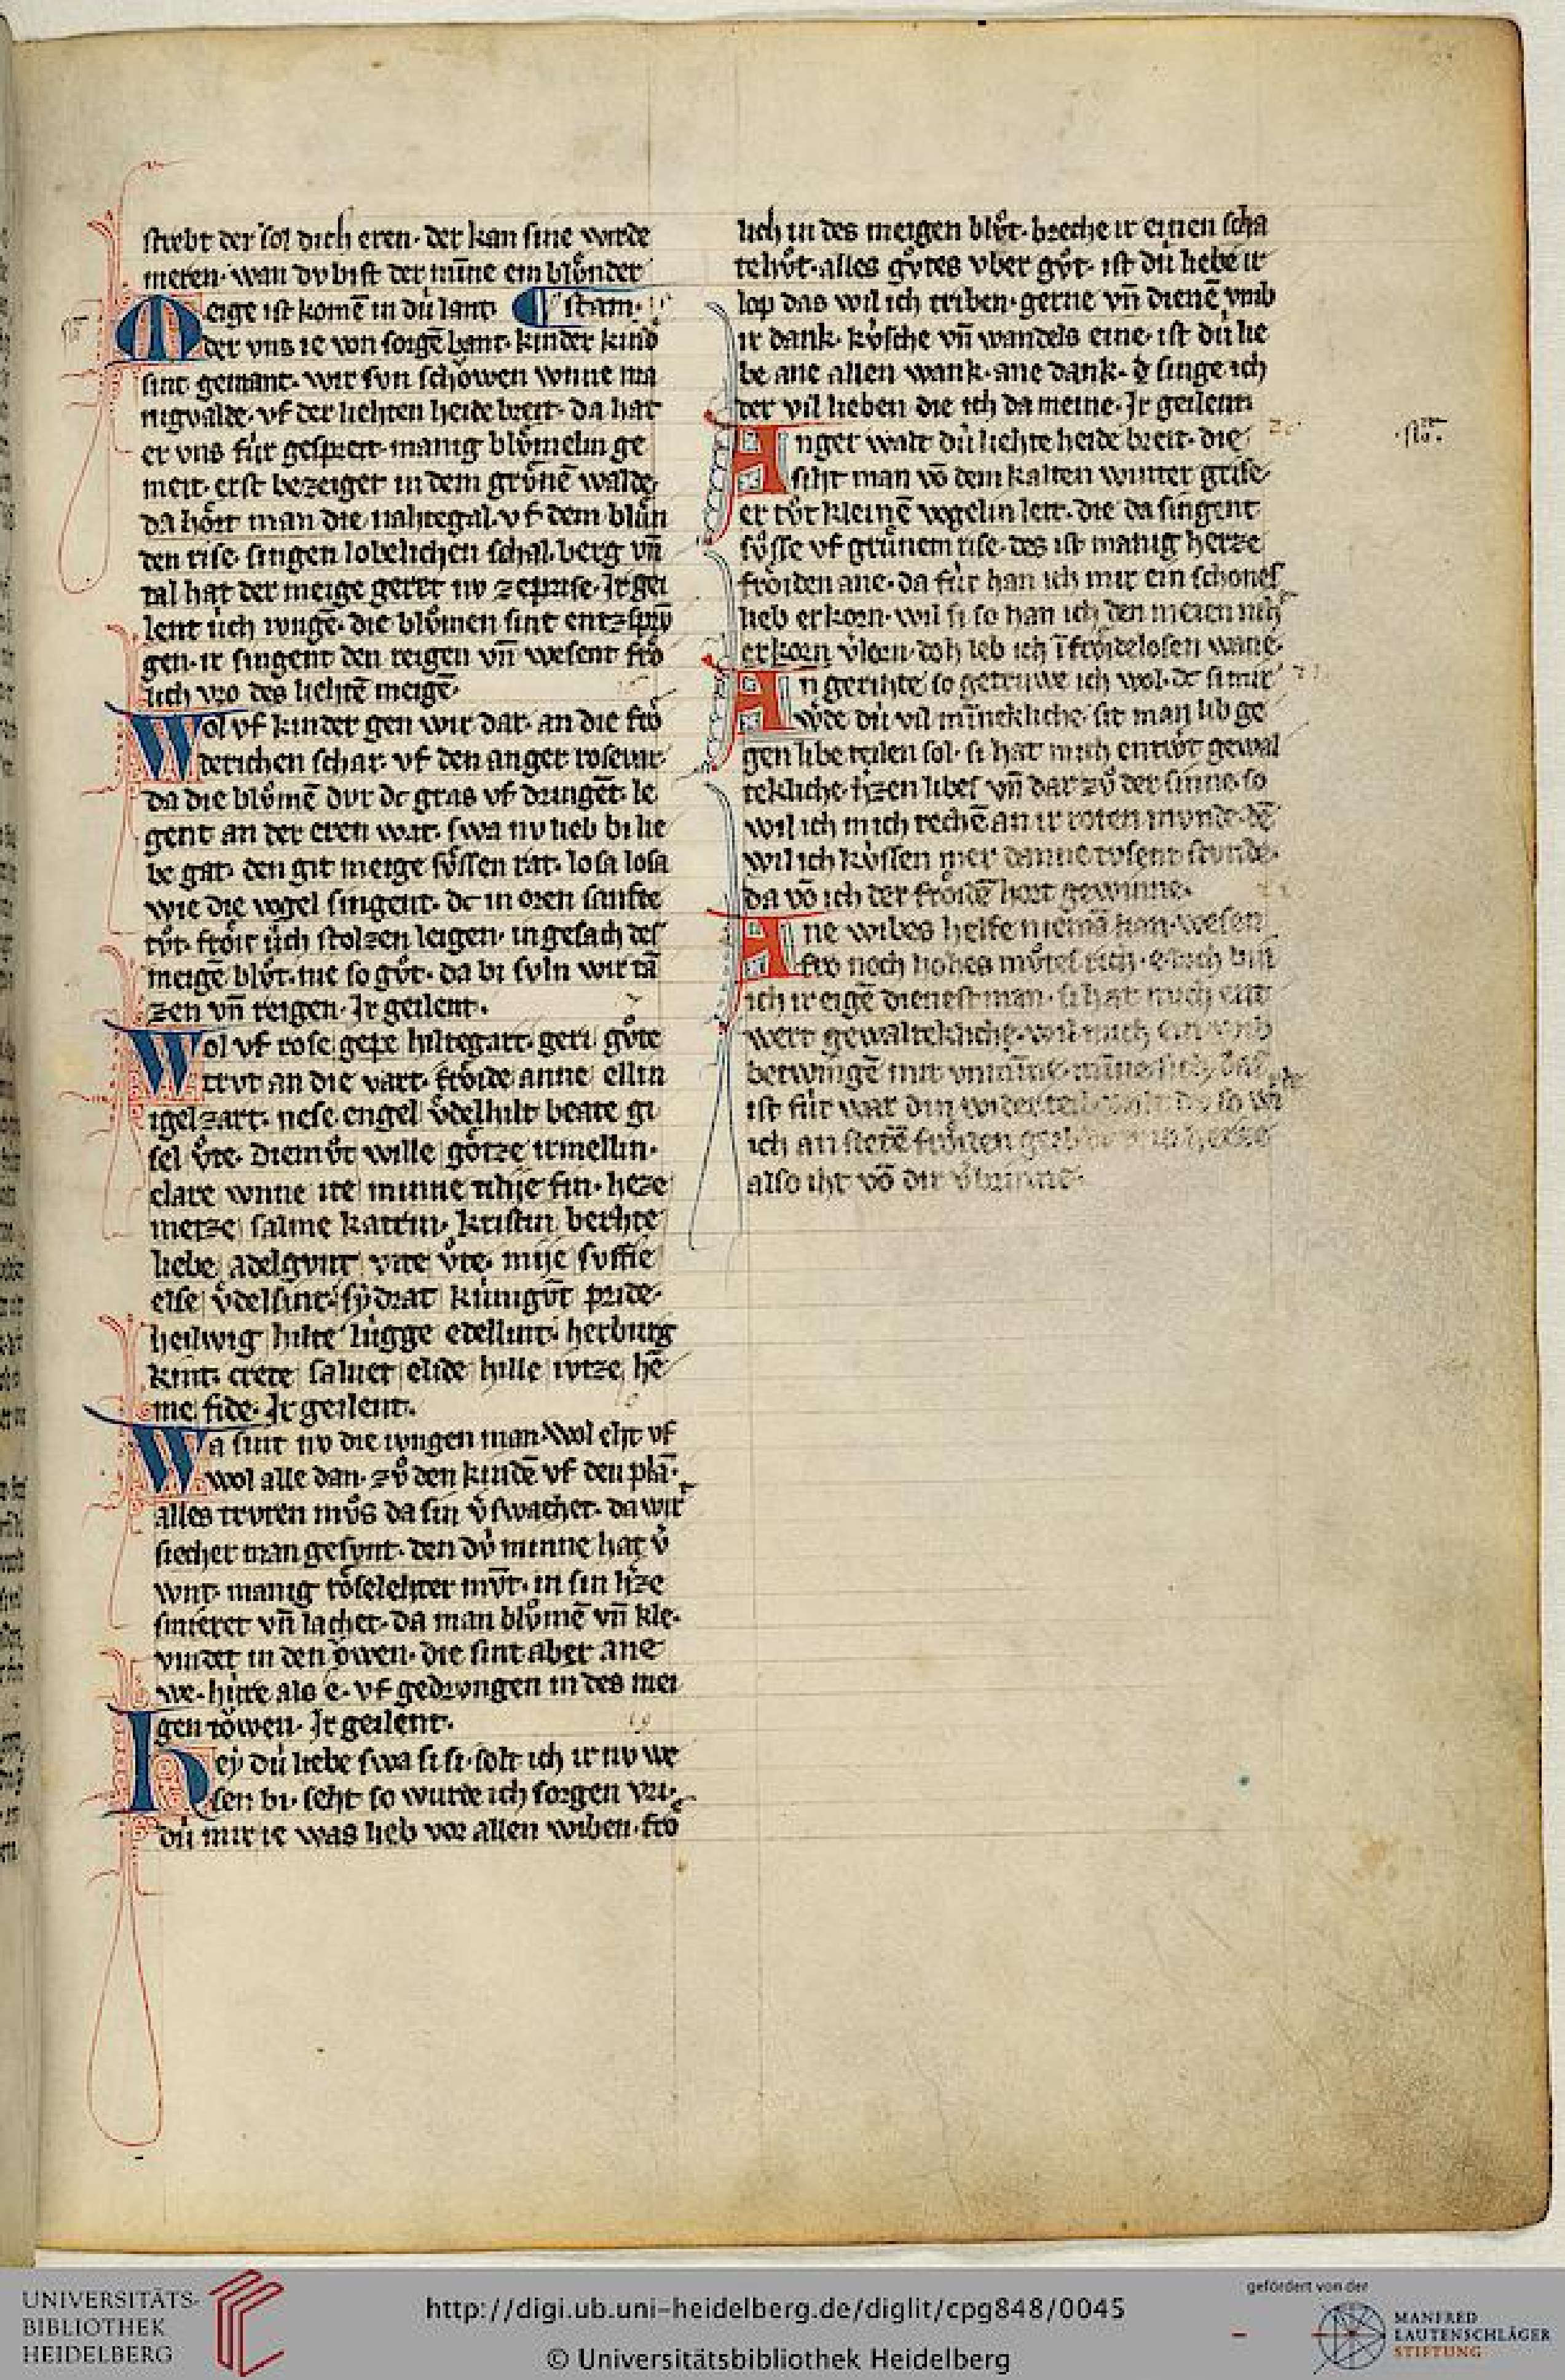 strebt der sol dich eren· der kan sine wirde
meren· wan dv bist der mīne ein blv̊nder
Meige ist komē in dú lant· stam·
der vns ie von sorgē bant· kinder kind
sint gemant· wir svn schowen wnne ma
nigvalde· vf der liehten heide breit· da hat
er vns fúr gespreit· manig blv̊melin ge
meit· erst bezeiget in dem grv̊nē walde
da hôrt man die nahtegal· vf dem blůn
den rise· singen lobelichen schal· berg vn̄
tal hat der meige geret nv ze prise· Ir gei
lent úch ivngē· die blv̊men sint entzsprv̄
gen· ir singent den reigen vn̄ wesent frô
lich vro des liehtē meigē·
Wol vf kinder gen wir dar· an die frô
derichen schar· vf den anger rosevar·
da die blv̊mē dvr dc gras vf dringēt· le
gent an der eren war· swa nv lieb bi lie
be gat· den git meige sv̊ssen rat· losa losa
wie die vogel singent· dc in oren sanfte
tv̊t· frôit úch stolzen leigen· ingesach des
meigē blv̊t· nie so gv̊t· da bi svln wir tā
zen vn̄ reigen· Ir geilent·
Wol vf rose gepe hiltegart· geri gv̊te
trvt an die vart· frôide anne ellin
igel zart· nese engel v̊delhilt beate gi
sel v̊te· diemv̊t wille gôtze irmellin·
clare wnne ite minne rihije fin· heze
metze salme katrin· kristin berhte
liebe adelgvnt vite v̊te· mije suffie
else v̊delsint· sýdrat kúnigv̄t pride·
heilwig hilte lúgge edellint· herburg
kint· crete salmet elide hille ivtze hē
me fide· Ir geilent·
Wa sint nv die ivngen man· wol eht vf
wol alle dan· zv̊ den kindē vf den plā·
alles trvren mv̊s da sin v̓swachet· da wirt
siecher man gesvnt· den dv́ minne hat v̓
wnt· manig rôselehter mv̄t· in sin h̓ze
smieret vn̄ lachet· da man blv̊mē vn̄ kle·
vindet in den ôwen· die sint aber ane
we· húte als e· vf gedrvngen in des mei
gen tôwen· Ir geilent·
Hey dú liebe swa si si· solt ich ir nv we
sen bi· seht so wurde ich sorgen vri·
dú mir ie was lieb vor allen wiben· frô
lich in des meigen blv̊t· breche ir einen scha
tehv̊t· alles gv̊tes vber gv̊t· ist dú liebe ir
lop das wil ich triben· gerne vn̄ dienē vmb
ir dank· kv́sche vn̄ wandels eine· ist dú lie
be ane allen wank· ane dank· d̓ singe ich
der vil lieben die ich da meine· Ir geilent
Anger walt dú liehte heide breit· die
siht man vō dem kalten winter grise·
er tv̊t kleinē vogelin leit· die da singent
sv̊sse vf grůnem rise· des ist manig herze
frôiden ane· da fúr han ich mir ein schones
lieb erkorn· wil si so han ich den meien niht
erkorn v̓lorn· doh leb ich ī frôidelosen wane·
An gerihte so getruwe ich wol· dc si mir
wde dú vil mīnekliche· sit man lib ge
gen libe teilen sol· si hat mich entwert gewal
tekliche· hˀzen libes vn̄ dar zv̊ der sinne· so
wil ich mich rechē an ir roten mvnde· dē
wil ich kv́ssen mer danne tvsent stvnde·
da vō ich der frôidē hort gewinne·
Ane wibes helfe niemā kan· wesen
fro noch hohes mv̊tes rich· e
ich ir eigē dienestman· si hat mich ent
wert gewaltekliche· wil mich ein wib
betwingē mit vnmīne· mīne sich das
ist fúr war din
ich an stetē frôiden
also iht vō dir
UNIVERSITÄTS-
BIBLIOTHEK
HEIDELBERG
http://digi.ub.uni-heidelberg.de/diglit/cpg848/0045
© Universitätsbibliothek Heidelberg
gefördert von der
MANFRED
LAUTENSCHLÄGER
STIFTUNG